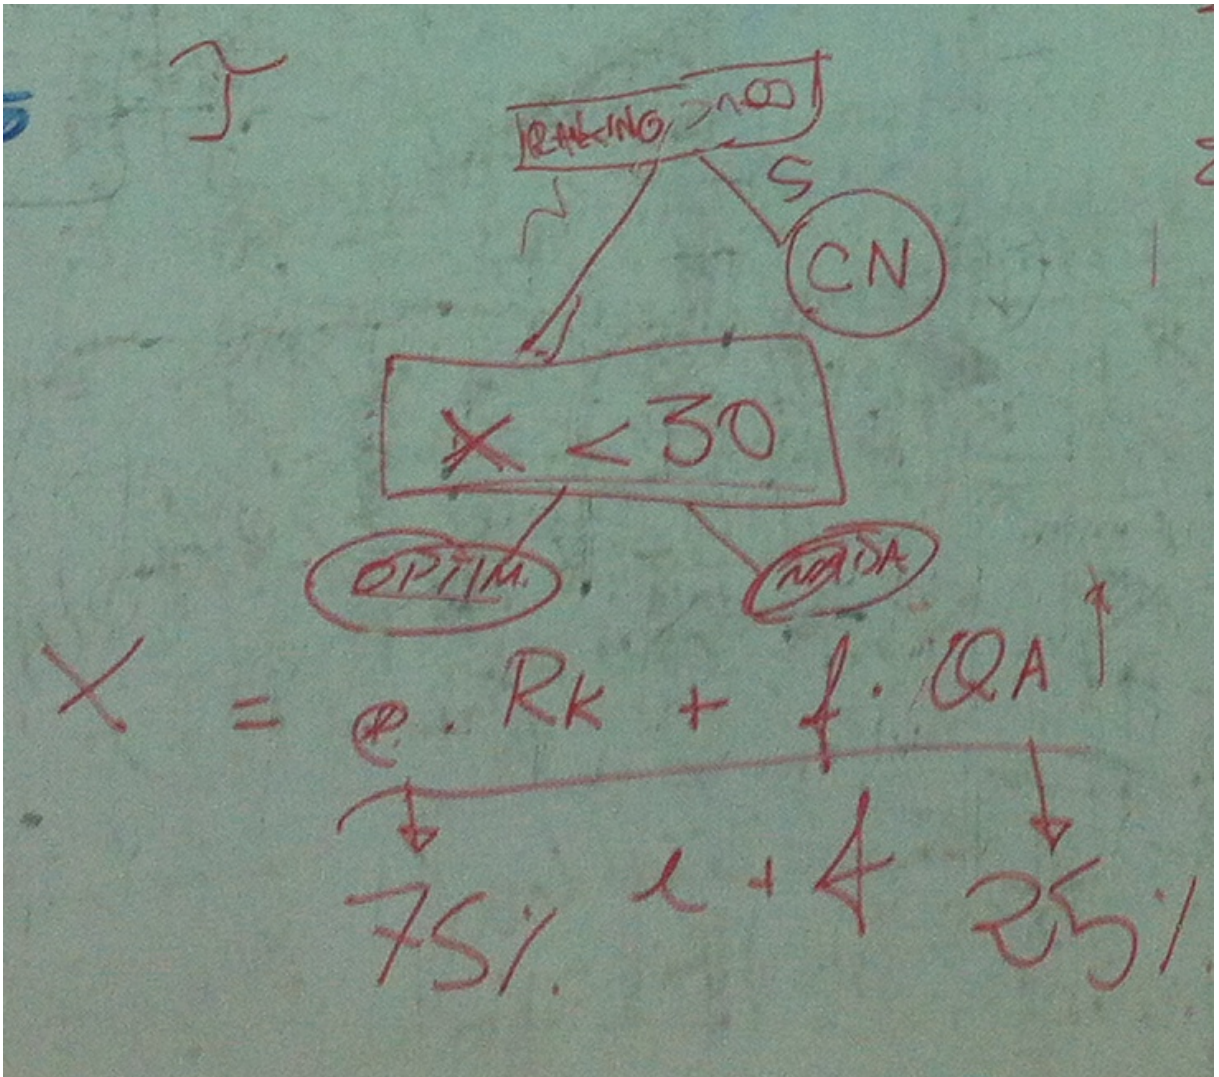 }
RANKING > 100
N S
CN
X < 30
OPTIM. NADA
X = e · Rk + f · QA ↑
e + f
75% 25%